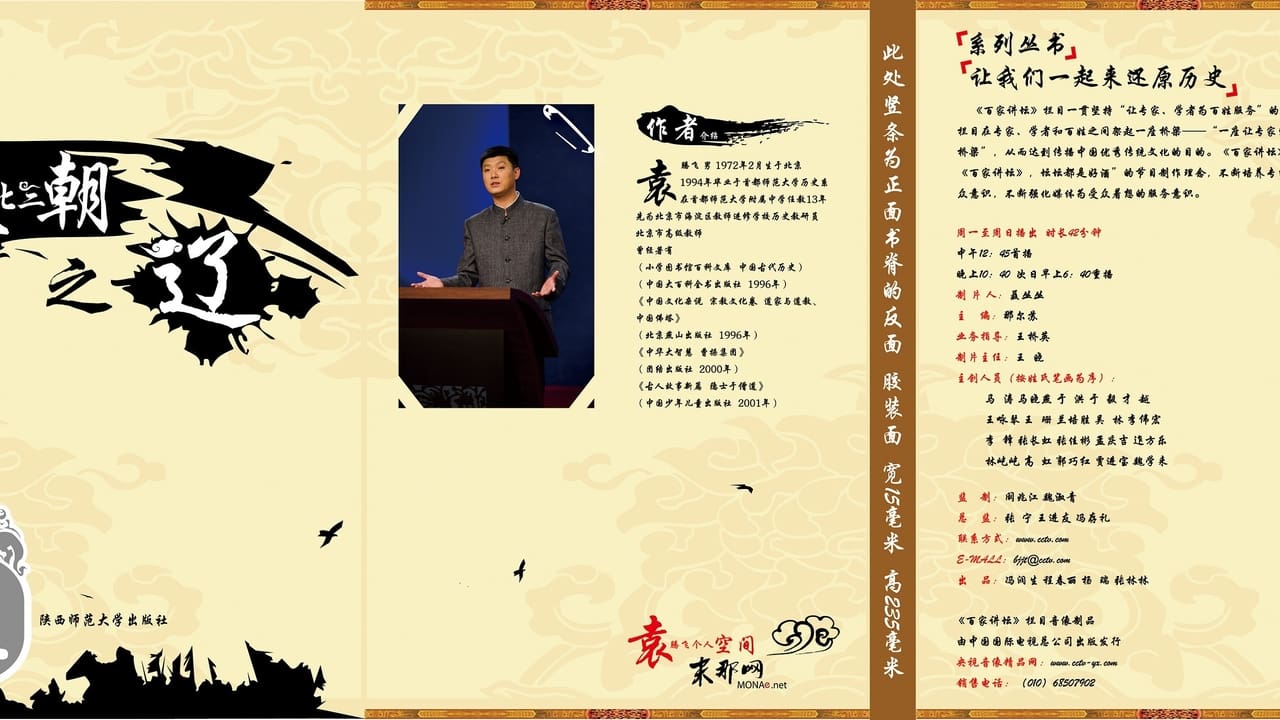 朝
之
辽
陕西师范大学出版社
作者介绍
袁腾飞 男 1972年2月生于北京
1994年毕业于首都师范大学历史系
在首都师范大学附属中学任教13年
先为北京市海淀区教师进修学校历史教研员
北京市高级教师
曾经著有
(小学图书馆百科文库 中国古代历史)
(中国大百科全书出版社 1996年)
《中国文化杂说 宗教文化卷 道家与道教、
中国佛塔》
(北京燕山出版社 1996年)
《中华大智慧 曹操集团》
(团结出版社 2000年)
《古人故事新篇 隐士于僧道》
(中国少年儿童出版社 2001年)
袁腾飞个人空间
来那网
MONAe.net
此处竖条为正面书脊的反面 胶装面 宽15毫米 高235毫米
「系列丛书」
「让我们一起来还原历史」
《百家讲坛》栏目一贯坚持“让专家、学者为百姓服务”的
栏目在专家、学者和百姓之间架起一座桥梁——“一座让专家
桥梁”,从而达到传播中国优秀传统文化的目的。《百家讲坛》
《百家讲坛》,坛坛都是好酒”的节目制作理念,不断培养专
众意识,不断强化媒体为受众着想的服务意识。
周一至周日播出 时长42分钟
中午12:45首播
晚上10:40 次日早上6:40重播
制片人:聂丛丛
主 编:那尔苏
业务指导:王桥英
制片主任:王 晓
主创人员(按姓氏笔画为序):
马 涛 马晓燕 于 洪 于 毅 才 越
王咏琴 王 珊 兰培胜 吴 林 李伟宏
李 锋 张长虹 张佳彬 孟庆吉 迮方乐
林屹屹 高 虹 郭巧红 贾进宝 魏学来
监 制:阎兆江 魏淑青
总 监:张 宁 王进友 冯存礼
联系方式:www.cctv.com
E-MALL:bjjt@cctv.com
出 品:冯润生 程春丽 杨 瑞 张林林
《百家讲坛》栏目音像制品
由中国国际电视总公司出版发行
央视音像精品网:www.cctv-yx.com
销售电话:(010) 68507902